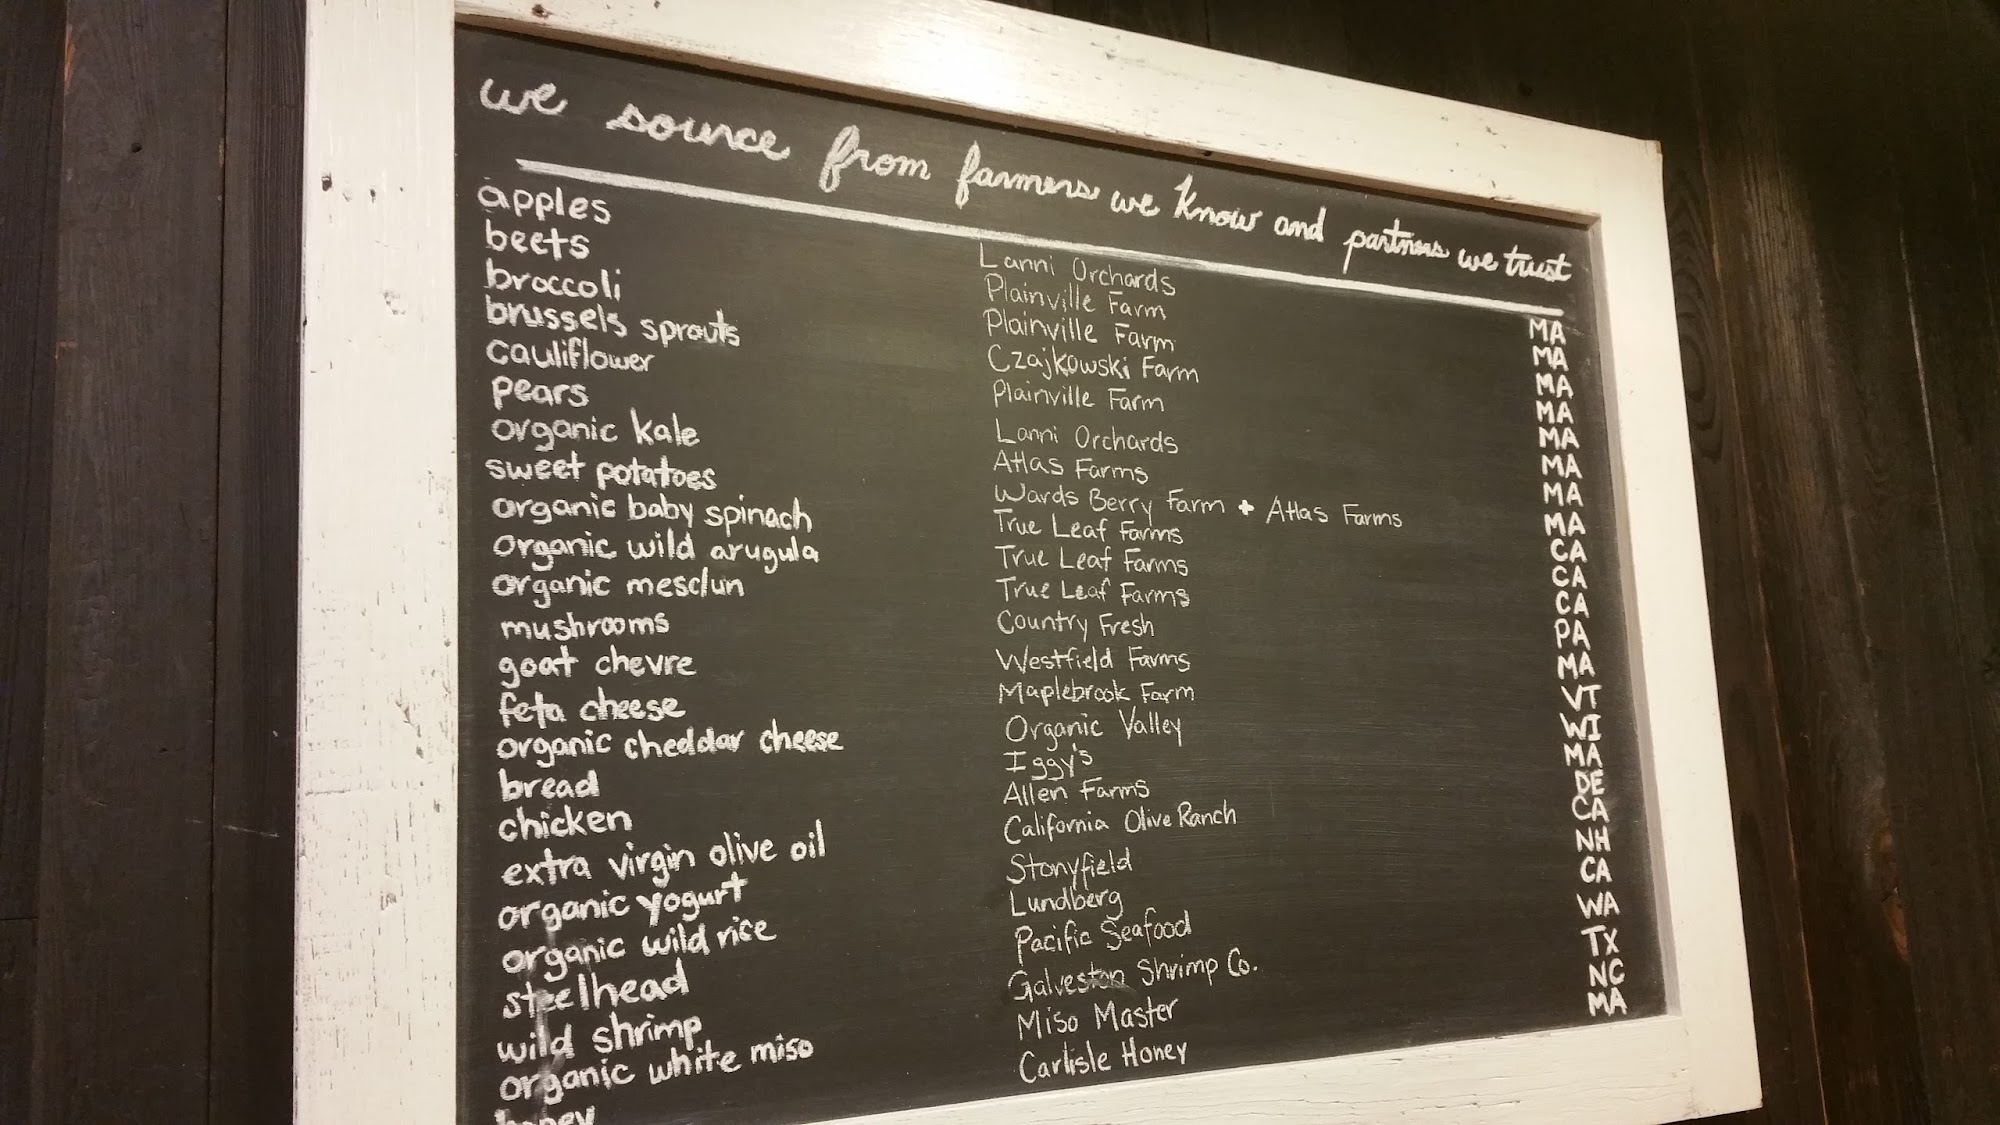 we source from farmers we know and partners we trust
apples Lanni Orchards MA
beets Plainville Farm MA
broccoli Plainville Farm MA
brussels sprouts Czajkowski Farm MA
cauliflower Plainville Farm MA
pears Lanni Orchards MA
organic kale Atlas Farms MA
sweet potatoes Wards Berry Farm + Atlas Farms MA
organic baby spinach True Leaf Farms CA
organic wild arugula True Leaf Farms CA
organic mesclun True Leaf Farms CA
mushrooms Country Fresh PA
goat chevre Westfield Farms MA
feta cheese Maplebrook Farm VT
organic cheddar cheese Organic Valley WI
bread Iggy's MA
chicken Allen Farms DE
extra virgin olive oil California Olive Ranch CA
organic yogurt Stonyfield NH
organic wild rice Lundberg CA
steelhead Pacific Seafood WA
wild shrimp Galveston Shrimp Co. TX
organic white miso Miso Master NC
honey Carlisle Honey MA